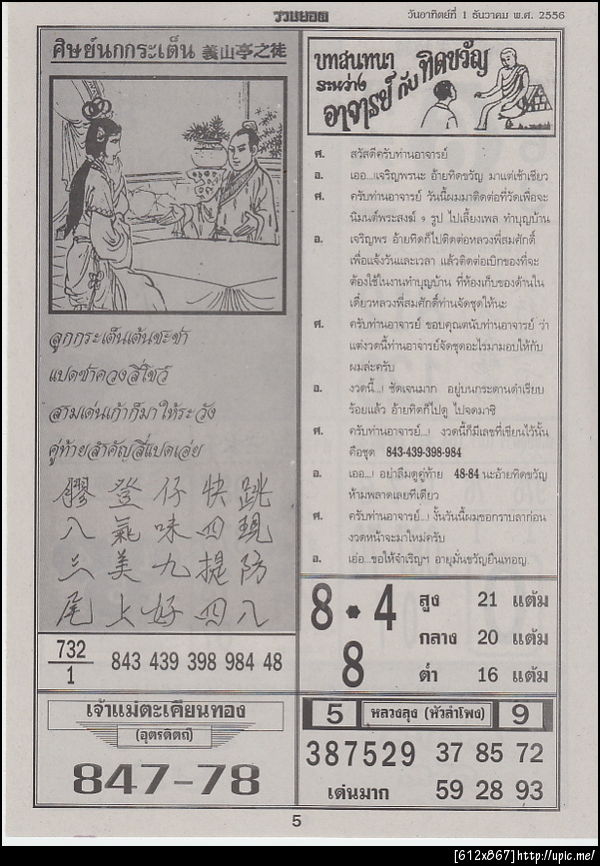 รวมยอด
วันอาทิตย์ที่ 1 ธันวาคม พ.ศ. 2556
ศิษย์นกกระเต็น 義山亭之徒
ลูกกระเต็นเต้นชะชา
แปดชาควงสี่โชว์
สามเด่นเก้าก็มาให้ระวัง
คู่ท้ายสำคัญสี่แปดเอ่ย
膠登仔快跳
八氣味四現
三美九提防
尾上好四八
732
1
843 439 398 984 48
เจ้าแม่ตะเคียนทอง
(อุตรดิตถ์)
847-78
บทสนทนา
ระหว่าง
อาจารย์ กับ ทิดขวัญ
ศ. สวัสดีครับท่านอาจารย์
อ. เออ...!เจริญพรนะ อ้ายทิดขวัญ มาแต่เช้าเชียว
ศ. ครับท่านอาจารย์ วันนี้ผมมาติดต่อที่วัดเพื่อจะ
นิมนต์พระสงฆ์ ๑ รูป ไปเลี้ยงเพล ทำบุญบ้าน
อ. เจริญพร อ้ายทิดก็ไปติดต่อหลวงพี่สมศักดิ์
เพื่อแจ้งวันและเวลา แล้วติดต่อเบิกของที่จะ
ต้องใช้ในงานทำบุญบ้าน ที่ห้องเก็บของด้านใน
เดี๋ยวหลวงพี่สมศักดิ์ท่านจัดชุดให้นะ
ศ. ครับท่านอาจารย์ ขอบคุณตนับท่านอาจารย์ ว่า
แต่งวดนี้ท่านอาจารย์จัดชุดอะไรมามอบให้กับ
ผมล่ะครับ
อ. งวดนี้...! ชัดเจนมาก อยู่บนกระดานดำเรียบ
ร้อยแล้ว อ้ายทิดก็ไปดู ไปจดมาซิ
ศ. ครับท่านอาจารย์...! งวดนี้ก็มีเลขที่เขียนไว้นั้น
คือชุด 843-439-398-984
อ. เออ...! อย่าลืมดูคู่ท้าย 48-84 นะอ้ายทิดขวัญ
ห้ามพลาดเลยทีเดียว
ศ. ครับท่านอาจารย์...! งั้นวันนี้ผมขอกราบลาก่อน
งวดหน้าจะมาใหม่ครับ
อ. เอ่อ...ขอให้จำเริญฯ อายุมั่นขวัญยืนเทอญ
8 • 4
8
สูง 21 แต้ม
กลาง 20 แต้ม
ต่ำ 16 แต้ม
5 หลวงลุง (หัวลำโพง) 9
387529 37 85 72
เด่นมาก 59 28 93
5
[612x867]http://upic.me/